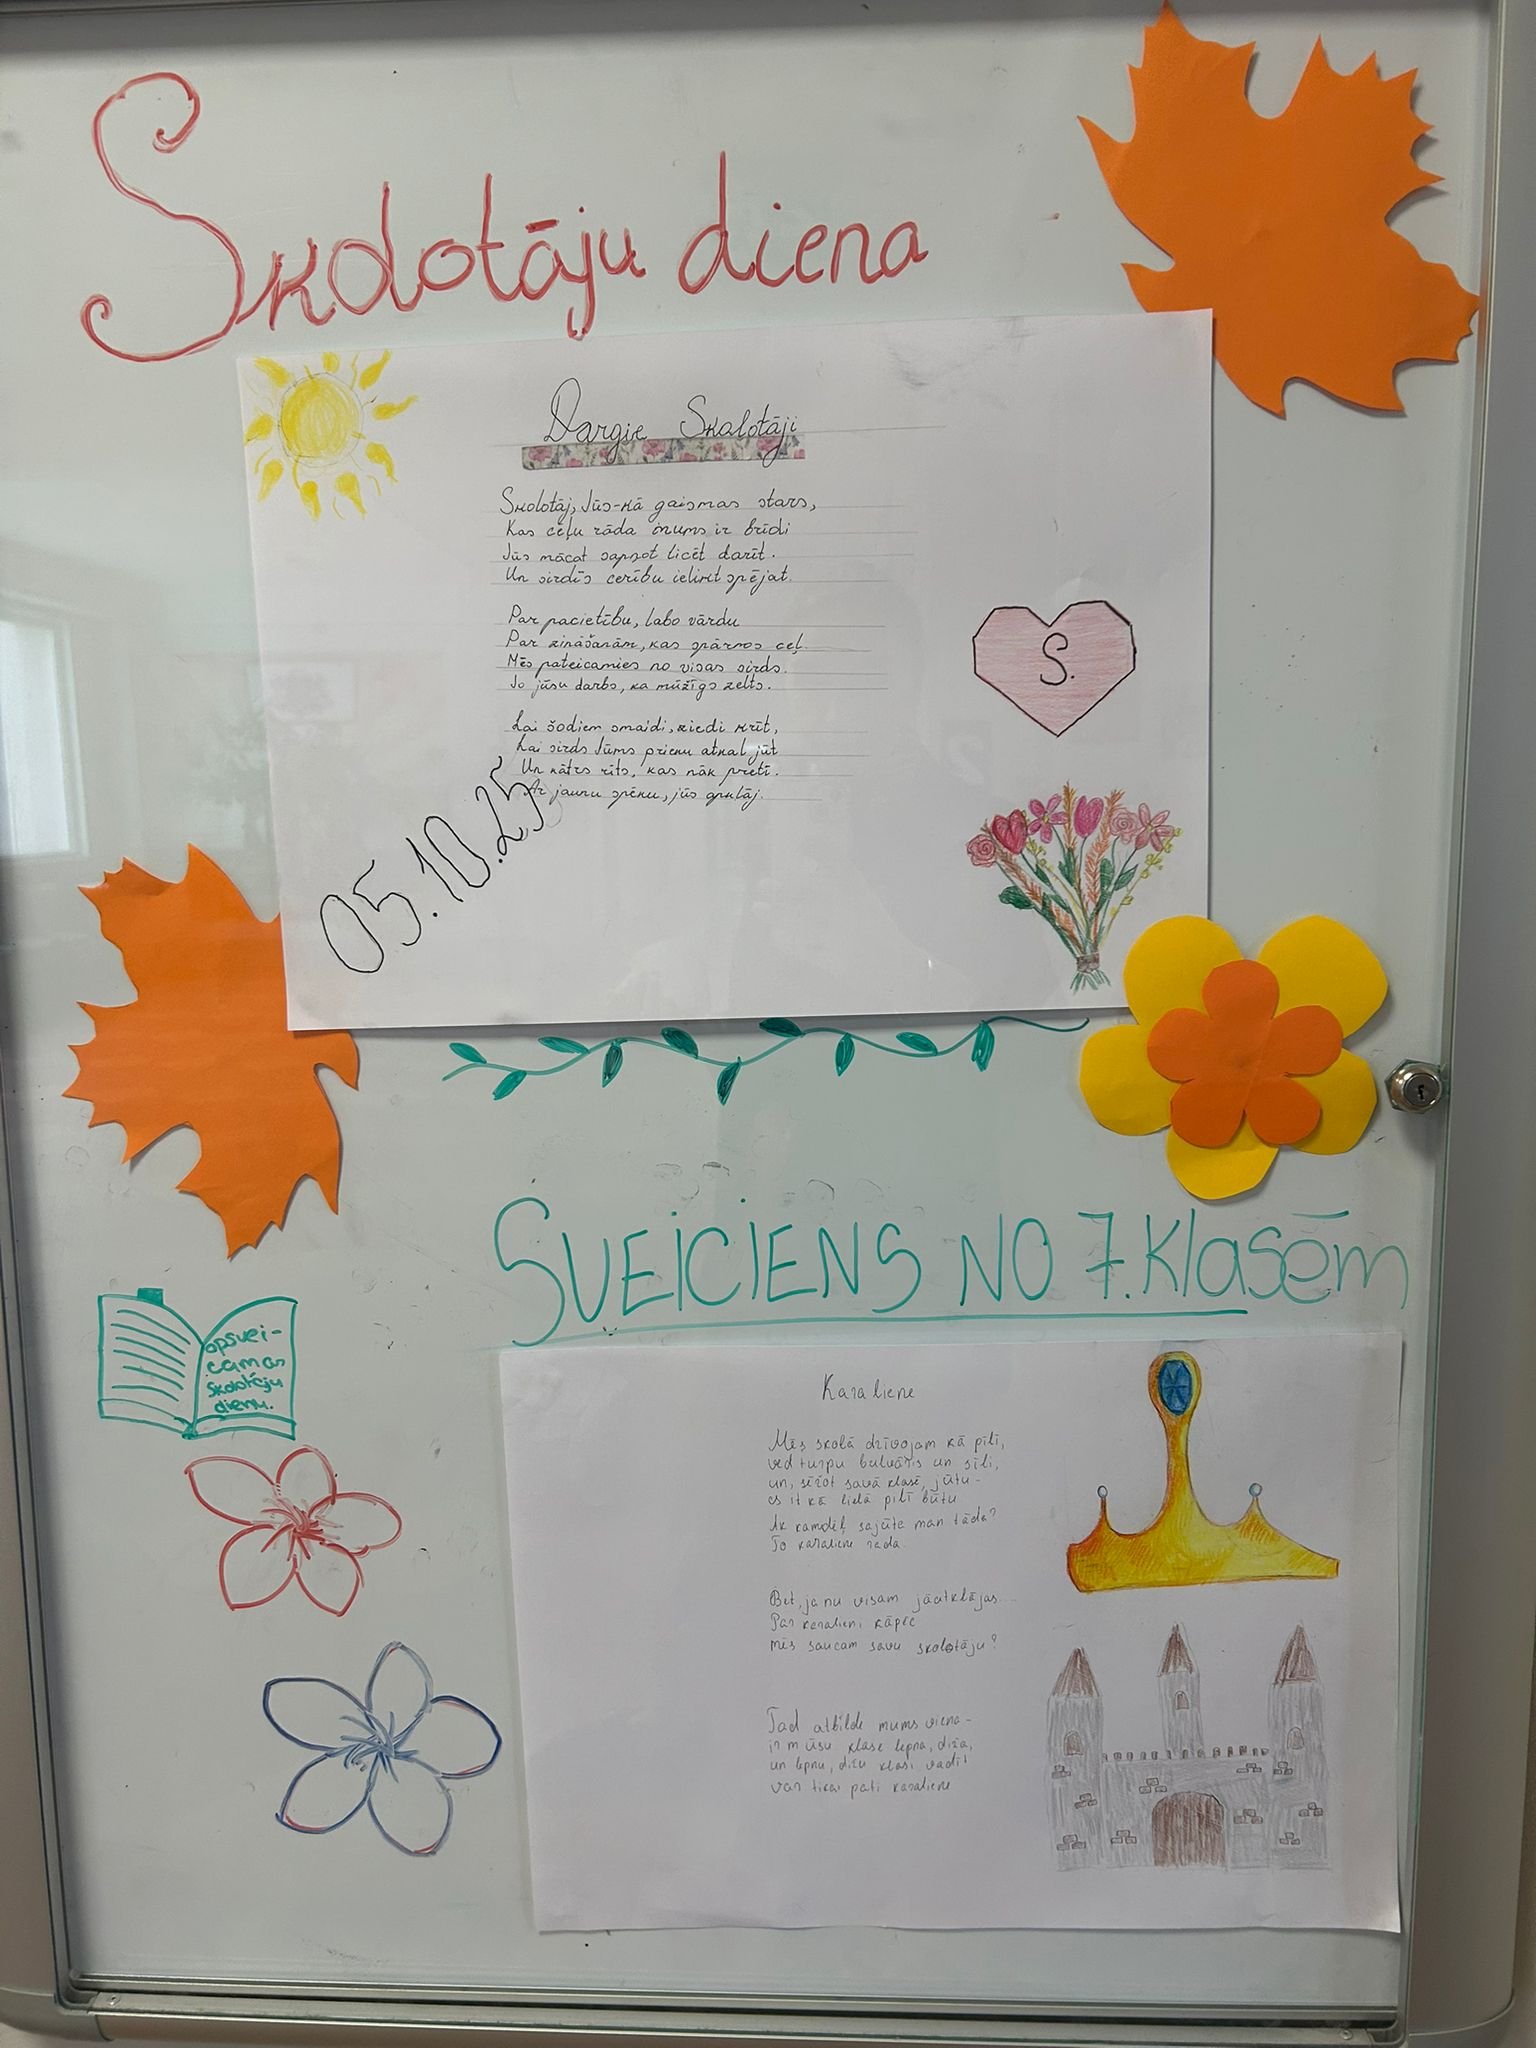 Skolotāju diena
Dargie Skalotāji
Skolotāj, Jūs-kā gaismas stars,
Kas ceļu rāda mums ir brīdi
Jūs mācat sapņot licēt darīt.
Un sirdīs cerību ielikt spējat.
Par pacietību, labo vārdu
Par zināšanām, kas spārnos ceļ.
Mēs pateicamies no visas sirds.
Jo jūsu darbs, ka mūžīgs zelts.
Lai šodiem smaidi, ziedi krīt,
Lai sirds Jūms prieku atkal jūt
Un kātrs rīts, kas nāk pretī.
Ar jaunu spēku, jūs
05.10.25
S.
SVEICIENS NO 7. Klasēm
apsvei-
camas
skolotāju
dienu.
Karaliene
Mēs skolā dzīvojam kā pilī,
ved turpu bulvāris un sili,
un, sēžot savā klasē, jūtu-
es it kā lielā pilī būtu
Ak kamdēļ sajūta man tāda?
To karaliene rada.
Bet, ja nu visam jāatklājas....
Par karalieni kāpēc
mēs saucam savu skolotāju?
Tad atbilde mums viena-
ir mūsu klase lepna, diža,
un lepnu, dižu klasi vadīt
var tikai pati karaliene